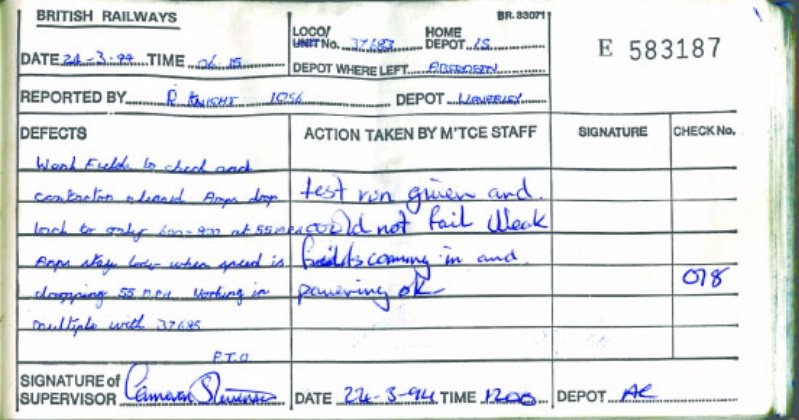 BRITISH RAILWAYS
BR. 33071
LOCO/ UNIT No. 37683 HOME DEPOT IS
E 583187
DATE 24-3-94 TIME 06.15
DEPOT WHERE LEFT ABERDEEN
REPORTED BY R KNIGHT 1056 DEPOT WAVERLEY
DEFECTS ACTION TAKEN BY M'TCE STAFF SIGNATURE CHECK No.
Weak Fields to check and
contractors cleaned Amps drop
back to only 600-900 at 55 mph
Amps stay low when speed is
dropping 55 m.p.h. Working in
multiple with 37685
P.T.O
test run given and
could not fail Weak
fields coming in and
powering ok
078
SIGNATURE of SUPERVISOR Cameron DATE 24-3-94 TIME 1200 DEPOT AC